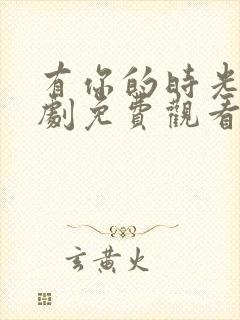 有你的時光
劇免費觀看
玄黃火